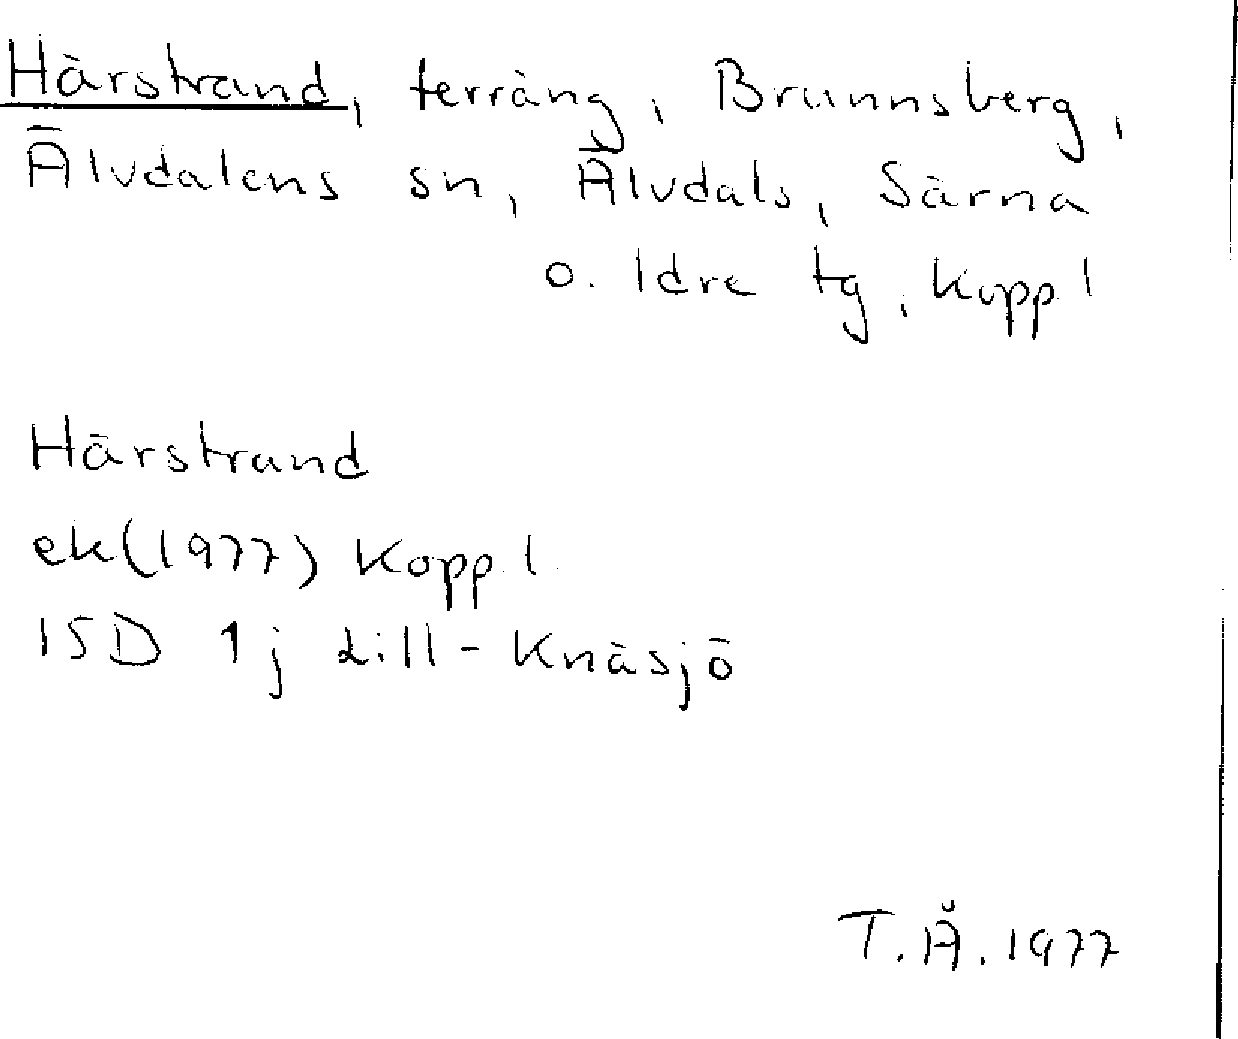 Härstrand, terräng, Brunnsberg,
Älvdalens sn, Älvdals, Särna
o. Idre tg, Kopp l
Härstrand
ek (1977) Kopp l
15D 1j Lill-Knäsjö
T.Å. 1977